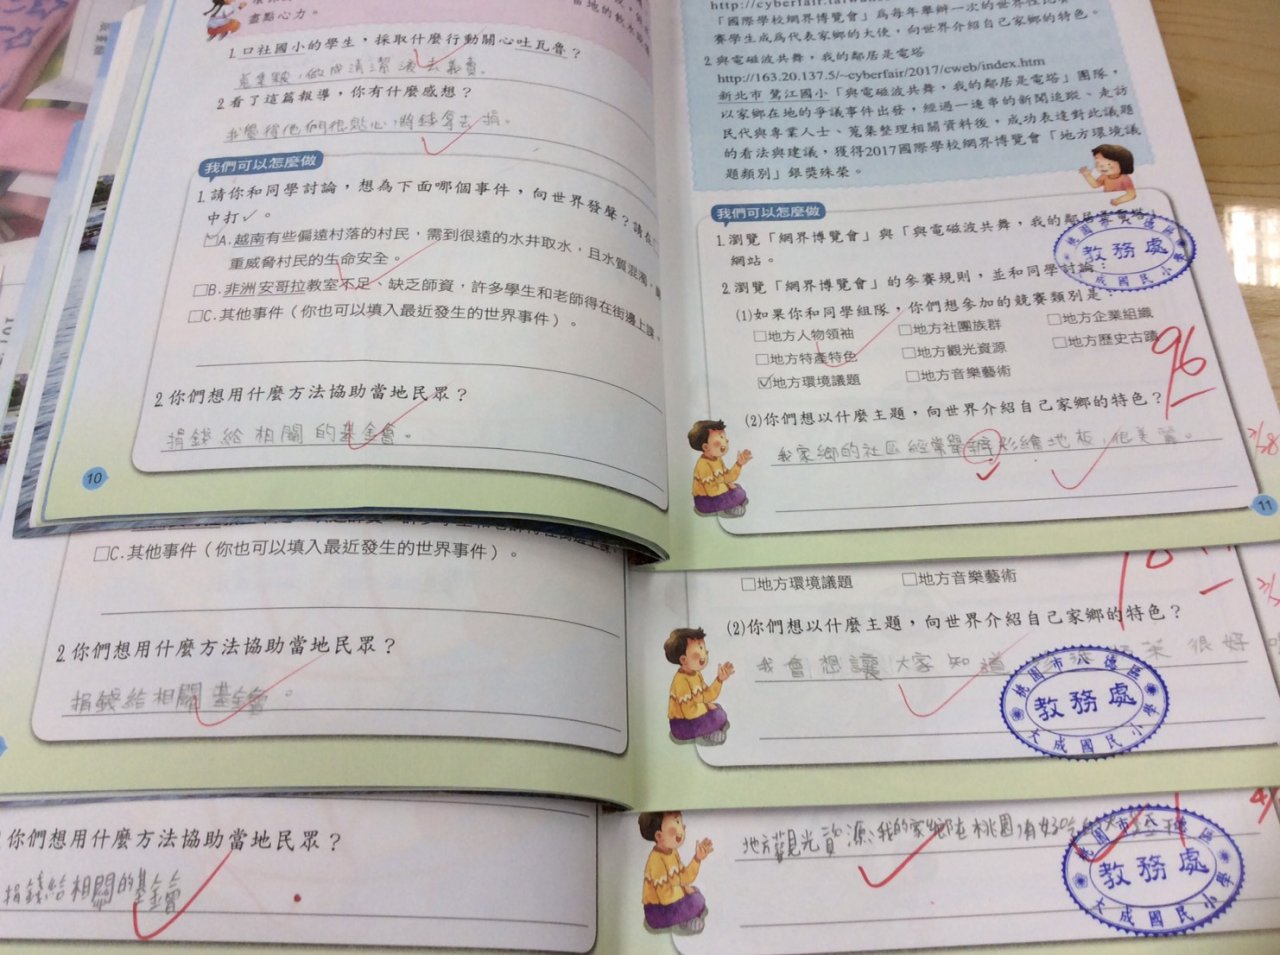 盡點心力。
1.口社國小的學生，採取什麼行動關心吐瓦魯？
做成清潔液去義賣。
2.看了這篇報導，你有什麼感想？
我覺得他們很
我們可以怎麼做
1.請你和同學討論，想為下面哪個事件，向世界發聲？請在□
中打✓。
☑A.越南有些偏遠村落的村民，需到很遠的水井取水，且水質混濁，
重威脅村民的生命安全。
□B.非洲安哥拉教室不足、缺乏師資，許多學生和老師得在街邊上課。
□C.其他事件（你也可以填入最近發生的世界事件）。
2.你們想用什麼方法協助當地民眾？
捐錢給相關的基金會。
10
「國際學校網界博覽會」為每年舉辦一次的世界性比賽
賽學生成為代表家鄉的大使，向世界介紹自己家鄉的特色。
2.與電磁波共舞，我的鄰居是電塔
http://163.20.137.5/~cyberfair/2017/cweb/index.htm
新北市鷺江國小「與電磁波共舞，我的鄰居是電塔」團隊，
以家鄉在地的爭議事件出發，經過一連串的新聞追蹤、走訪
民代與專業人士、蒐集整理相關資料後，成功表達對此議題
的看法與建議，獲得2017國際學校網界博覽會「地方環境議
題類別」銀獎殊榮。
我們可以怎麼做
1.瀏覽「網界博覽會」與「與電磁波共舞，我的鄰居是電塔」
網站。
2.瀏覽「網界博覽會」的參賽規則，並和同學討論：
(1)如果你和同學組隊，你們想參加的競賽類別是：
□地方人物領袖 □地方社團族群 □地方企業組織
□地方特產特色 □地方觀光資源 □地方歷史古蹟
☑地方環境議題 □地方音樂藝術
96
(2)你們想以什麼主題，向世界介紹自己家鄉的特色？
我家鄉的社區經常舉辦彩繪地板，很美麗。
11
教務處
□C.其他事件（你也可以填入最近發生的世界事件）。
2.你們想用什麼方法協助當地民眾？
捐錢給相關基金會。
□地方環境議題 □地方音樂藝術
(2)你們想以什麼主題，向世界介紹自己家鄉的特色？
我會想讓大家知道 很好
桃園市八德區
教務處
大成國民小學
你們想用什麼方法協助當地民眾？
捐錢給相關的基金會
地方觀光資源:我的家鄉在桃園,有好吃的
桃園市八德區
教務處
大成國民小學